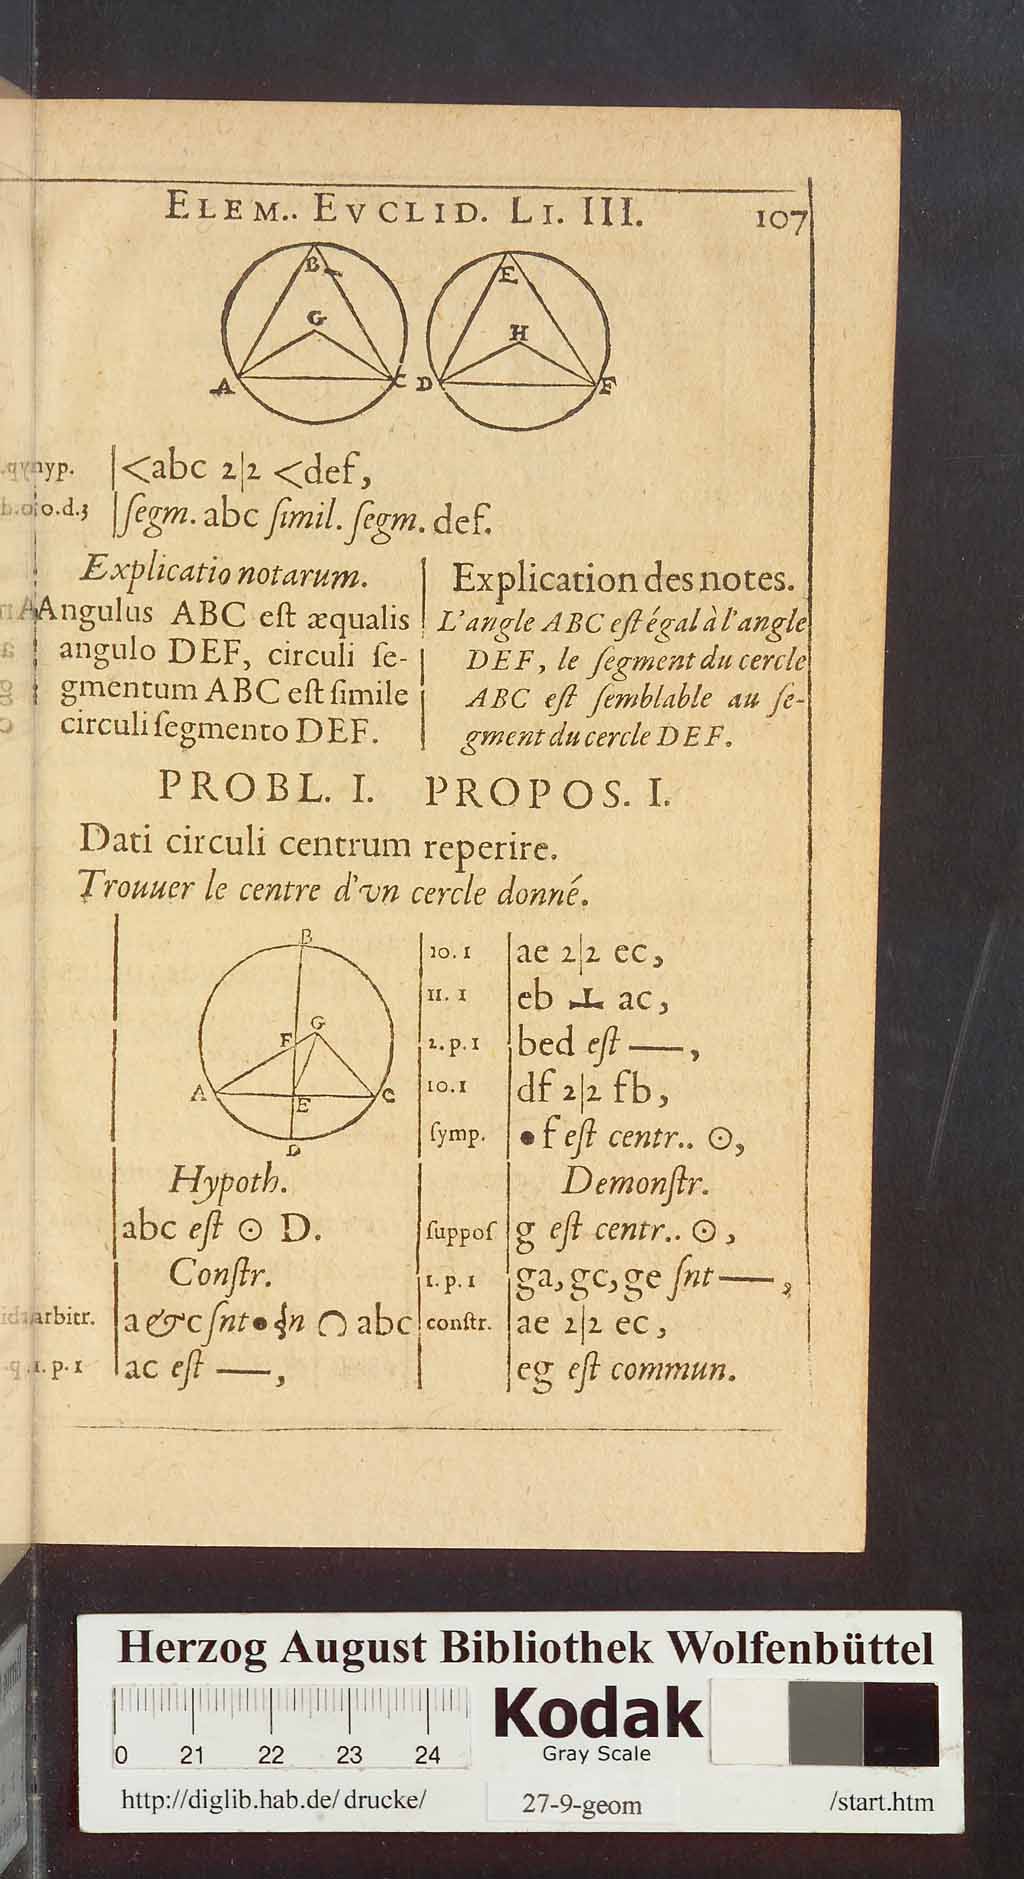 ELEM.. EVCLID. LI. III. 107
B
G
A C
E
H
D F
hyp. <abc 2|2 <def,
o.d.3 ſegm. abc ſimil. ſegm. def.
Explicatio notarum.
Angulus ABC eſt æqualis
angulo DEF, circuli ſe-
gmentum ABC eſt ſimile
circuli ſegmento DEF.
Explication des notes.
L'angle ABC eſt égal à l'angle
DEF, le ſegment du cercle
ABC eſt ſemblable au ſe-
gment du cercle DEF.
PROBL. I. PROPOS. I.
Dati circuli centrum reperire.
Trouuer le centre d'vn cercle donné.
B
F G
A E C
D
Hypoth.
abc eſt ⊙ D.
Conſtr.
arbitr. a & c ſnt • in ⌒ abc
1. p. 1 ac eſt —,
10. 1 ae 2|2 ec,
11. 1 eb ⊥ ac,
2. p. 1 bed eſt —,
10. 1 df 2|2 fb,
ſymp. • f eſt centr.. ⊙,
Demonſtr.
ſuppoſ g eſt centr.. ⊙,
1. p. 1 ga, gc, ge ſnt —,
conſtr. ae 2|2 ec,
eg eſt commun.
Herzog August Bibliothek Wolfenbüttel
0 21 22 23 24
Kodak
Gray Scale
http://diglib.hab.de/ drucke/ 27-9-geom /start.htm